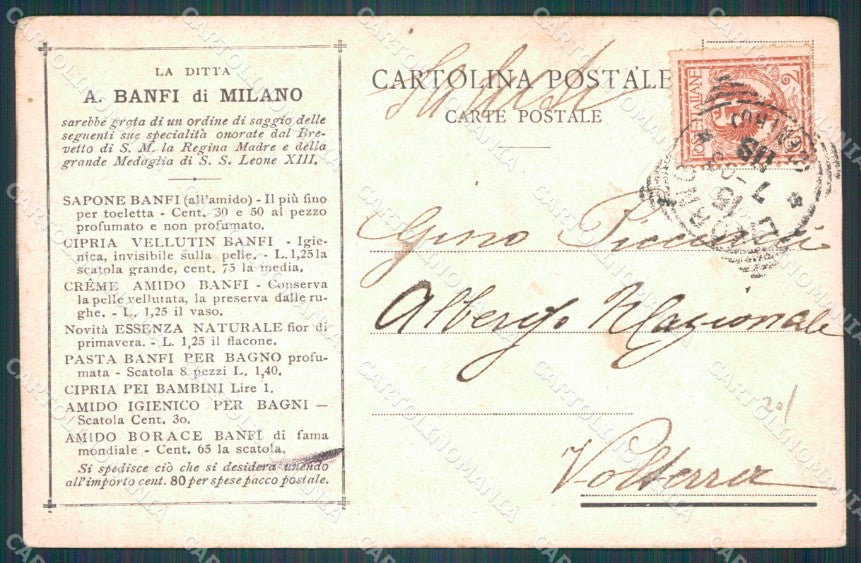 LA DITTA
A. BANFI di MILANO
sarebbe grata di un ordine di saggio delle
seguenti sue specialità onorate dal Bre-
vetto di S. M. la Regina Madre e della
grande Medaglia di S. S. Leone XIII.
SAPONE BANFI (all'amido) - Il più fino
per toeletta - Cent. 30 e 50 al pezzo
profumato e non profumato.
CIPRIA VELLUTIN BANFI - Igie-
nica, invisibile sulla pelle. - L. 1,25 la
scatola grande, cent. 75 la media.
CRÊME AMIDO BANFI - Conserva
la pelle vellutata, la preserva dalle ru-
ghe. - L. 1,25 il vaso.
Novità ESSENZA NATURALE fior di
primavera. - L. 1,25 il flacone.
PASTA BANFI PER BAGNO profu-
mata - Scatola 8 pezzi L. 1,40.
CIPRIA PEI BAMBINI Lire 1.
AMIDO IGIENICO PER BAGNI —
Scatola Cent. 30.
AMIDO BORACE BANFI di fama
mondiale - Cent. 65 la scatola.
Si spedisce ciò che si desidera unendo
all'importo cent. 80 per spese pacco postale.
CARTOLINA POSTALE
CARTE POSTALE
Gino
Albergo Nazionale
Volterra
201
CARTOLINOMANIA